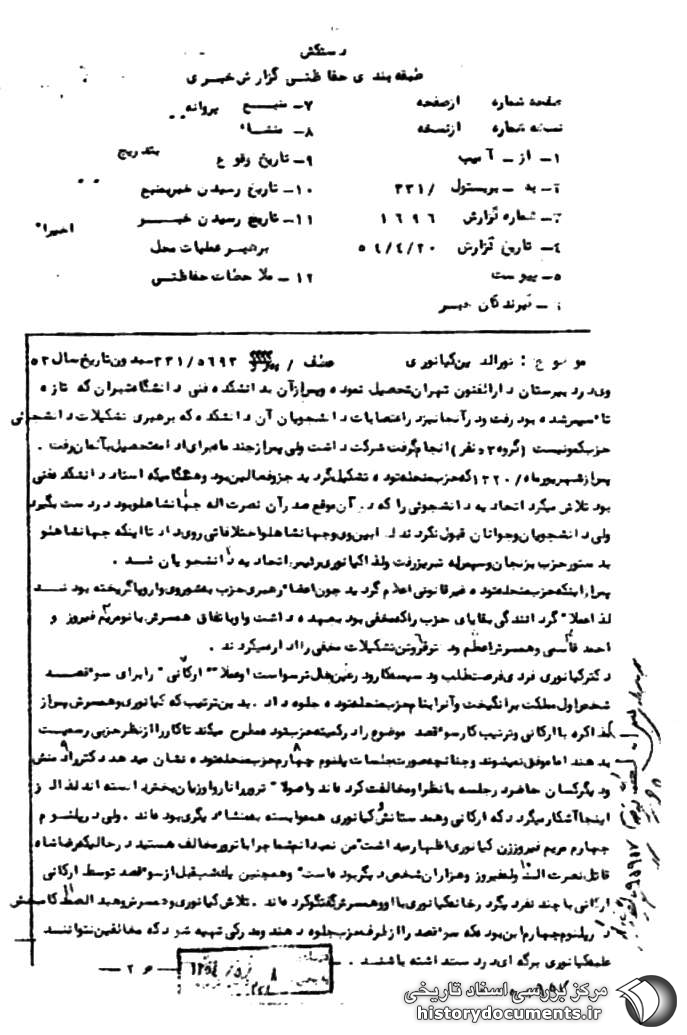 دستکش
طبقه بندی حفاظتی گزارش خبری
صفحه شماره ازصفحه
نسخه شماره ازنسخه
۱- از - آسیب
۲- به - بریستول /۳۳۱
۳- شماره گزارش ۱۶۹۶
۴- تاریخ گزارش ۵۴/۴/۲۰
۵- پیوست
۶- گیرندگان خبر
۷- منبع پروانه
۸- منشاء
۹- تاریخ وقوع بتدریج
۱۰- تاریخ رسیدن خبربمنبع
۱۱- تاریخ رسیدن خبر اخیرا"
برهبر عملیات محل
۱۲- ملاحظات حفاظتی
موضوع : نورالدین کیانوری عطف / ۳۳۱/۵۶۹۲ بدون تاریخ سال ۵۳
وی در دبیرستان دارالفنون تهران تحصیل نموده وپس ازآن به دانشکده فنی دانشگاه تهران که تازه
تاسیس شده بود رفت ودرآنجا نیز در اعتصابات دانشجویان آن دانشکده که برهبری تشکیلات دانشجوئی
حزب کمونیست (گروه ۵۳ نفر) انجام گرفت شرکت داشت ولی پس ازچند ماه برای ادامه تحصیل به آلمان رفت .
پس ازشهریورماه /۱۳۲۰ که حزب منحله توده تشکیل گردید جزوفعالین بود وهنگامیکه استاد دانشکده فنی
بود تلاش میکرد اتحادیه دانشجوئی را که در آن موقع صدر آن نصرت اله جهانشاهلو بود در دست بگیرد
ولی دانشجویان وجوانان قبول نکردند لذا بین وی وجهانشاهلو اختلافاتی روی داد تا اینکه جهانشاهلو
بدستور حزب بزنجان وسپس به تبریز رفت ولذا کیانوری رئیس اتحادیه دانشجویان شد .
پس از اینکه حزب منحله توده غیرقانونی اعلام گردید چون اعضاء رهبری حزب به شوروی واروپا گریخته بودند
لذا عملا" گردانندگی بقایای حزب راکه مخفی بود بعهده داشت واو باتفاق همسرش بانو مریم فیروز و
احمد قاسمی وهمسرش اعظم ودکتر فروتن تشکیلات مخفی را اداره میکردند .
دکترکیانوری فردی فرصت طلب ودسیسه کارودرعین حال ترسو است اوعملا" "ارکانی" را برای سوءقصد
شخص اول مملکت برانگیخت وآنرا بنام حزب منحله توده جلوه داد . بدین ترتیب که کیانوری وهمسرش پس از
مذاکره با ارکانی وترتیب کار سوءقصد موضوع را درکمیته حزب توده مطرح میکند تاکار را ازنظر حزبی رسمیت
بدهند اما موفق نمیشوند وچنانچه صورت جلسات پلنوم چهارم حزب منحله توده نشان میدهد دکتر رادمنش
ودیگرکسان حاضر در جلسه با نظر او مخالفت کرده اند واصولا" ترور را ناروا وزیان بخش دانسته اند لذا از
اینجا آشکار میگردد که ارکانی وهمدستانش وکیانوری همه وابسته به منشاء دیگری بوده اند . ولی در پلنوم
چهارم مریم فیروز زن کیانوری اظهار میداشت "من نمیدانم شما چرا با ترور مخالف هستید در حالیکه رضاشاه
قاتل نصرت الدوله فیروز وهزاران شخص دیگر بوده است" وهمچنین یک شب قبل از سوءقصد توسط ارکانی
ارکانی با چند نفر دیگر در خانه کیانوری با او وهمسرش گفتگو کرده اند . تلاش کیانوری وهمسرش وعبدالصمد کامبخش
در پلنوم چهارم این بود که سوءقصد را از طرف حزب جلوه دهند ومدرکی تهیه شود که مخالفین نتوانند
علیه کیانوری برگه ای در دست داشته باشند .
- ص ۲ -
مرکز بررسی اسناد تاریخی
historydocuments.ir